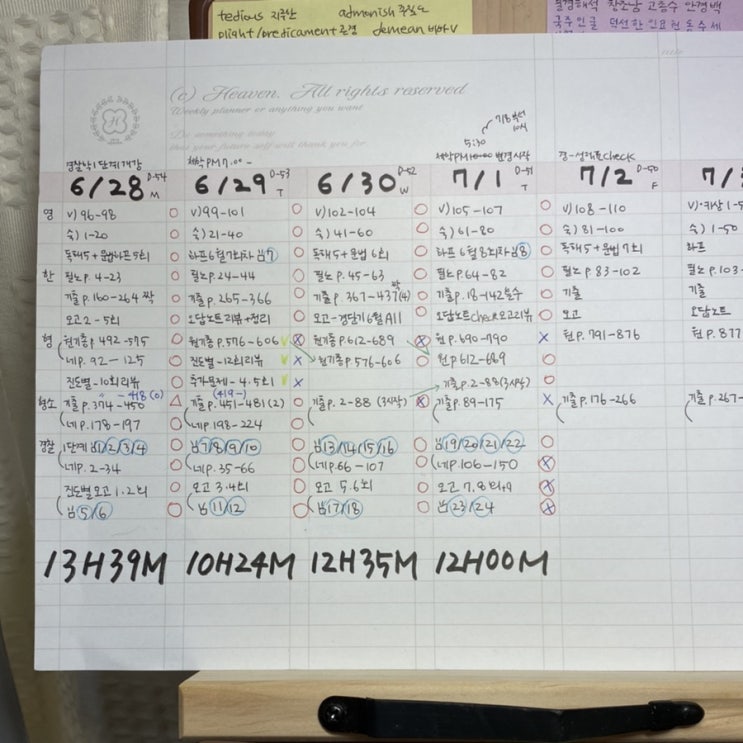 tedious 지루한 admonish 충고하다
plight/predicament 곤경 demean 비하 V
(c) Heaven. All rights reserved
Weekly planner or anything you want
Do something today
that your future self will thank you for
7/8부터 10시
5:30
경찰학 1단계 개강
체학 PM 7:00 -
변경 시작
경-설해표 check
6/28 D-54 M
6/29 D-53 T
6/30 D-52 W
7/1 D-51 T
7/2 D-50 F
7/
영 V) 96-98 V) 99-101 V) 102-104 V) 105-107 V) 108-110
숙) 1-20 숙) 21-40 숙) 41-60 숙) 61-80 숙) 81-100 숙) 1-50
독해5+문법하프 5회 하프 6월 7회차 남7 독해5+문법 6회 하프 6월 8회차 남8 독해5+문법 7회 하프
한 필노 p. 4-23 필노 p. 24-44 필노 p. 45-63 필노 p. 64-82 필노 p. 83-102 필노 p. 103-
기출 p. 160-264 짝 기출 p. 265-366 기출 p. 367-437(4) 짝 기출 p. 18-142 홀수 기출 기출
모고 2-5회 오답노트 리뷰+정리 모고-경단기 6월 All 오답노트 check 모고리뷰 모고 오답노트
형 원기총 p. 492-575 원기총 p. 576-606 원기총 p. 612-689 원 p. 690-790 원 p. 791-876 원 p. 877
네 p. 92-125 진도별-12회 리뷰 원기총 p. 576-606 원 p. 612-689
진도별-10회 리뷰 추가문제-4.5회 기출 p. 2-88 (3시작)
-418(0) (419-)
형소 기출 p. 374-450 기출 p. 451-481(2) 기출 p. 2-88 (3시작) 기출 p. 89-175 기출 p. 176-266 기출 p. 267-
네 p. 178-197 네 p. 198-224
경찰 1단계 남 1/2/3/4 남 7/8/9/10 남 13/14/15/16 남 19/20/21/22
네 p. 2-34 네 p. 35-66 네 p. 66-107 네 p. 106-150
진도별모고 1.2회 모고 3.4회 모고 5.6회 모고 7.8회+9
남 5/6 남 11/12 남 17/18 남 23/24
13H39M 10H24M 12H35M 12H00M